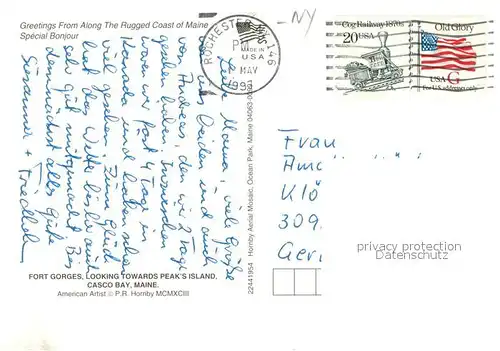 Greetings From Along The Rugged Coast of Maine
Spécial Bonjour
NY
ROCHESTER NY 146
PM
MADE IN
U S A
MAY
199
Cog Railway 1870s
20 USA
Old Glory
USA G
For U.S. addresses only
Liebe Mama, viele Grüße
von uns beiden und auch
von Andreas, den wir 3 Tage
gesehen haben. Inzwischen
waren wir fast 4 Tage in
Kanada und haben schon
viel gesehen. Zum Glück
hat das Wetter bisher auch
sehr gut mitgemacht. Bis
demnächst alles Gute
Susanne + Friedhelm
Frau
Ama
Klö
309
Ger
privacy protection
Datenschutz
22441954 Hornby Aerial Mosaic, Ocean Park, Maine 04063-00
FORT GORGES, LOOKING TOWARDS PEAK'S ISLAND,
CASCO BAY, MAINE.
American Artist © P.R. Hornby MCMXCIII